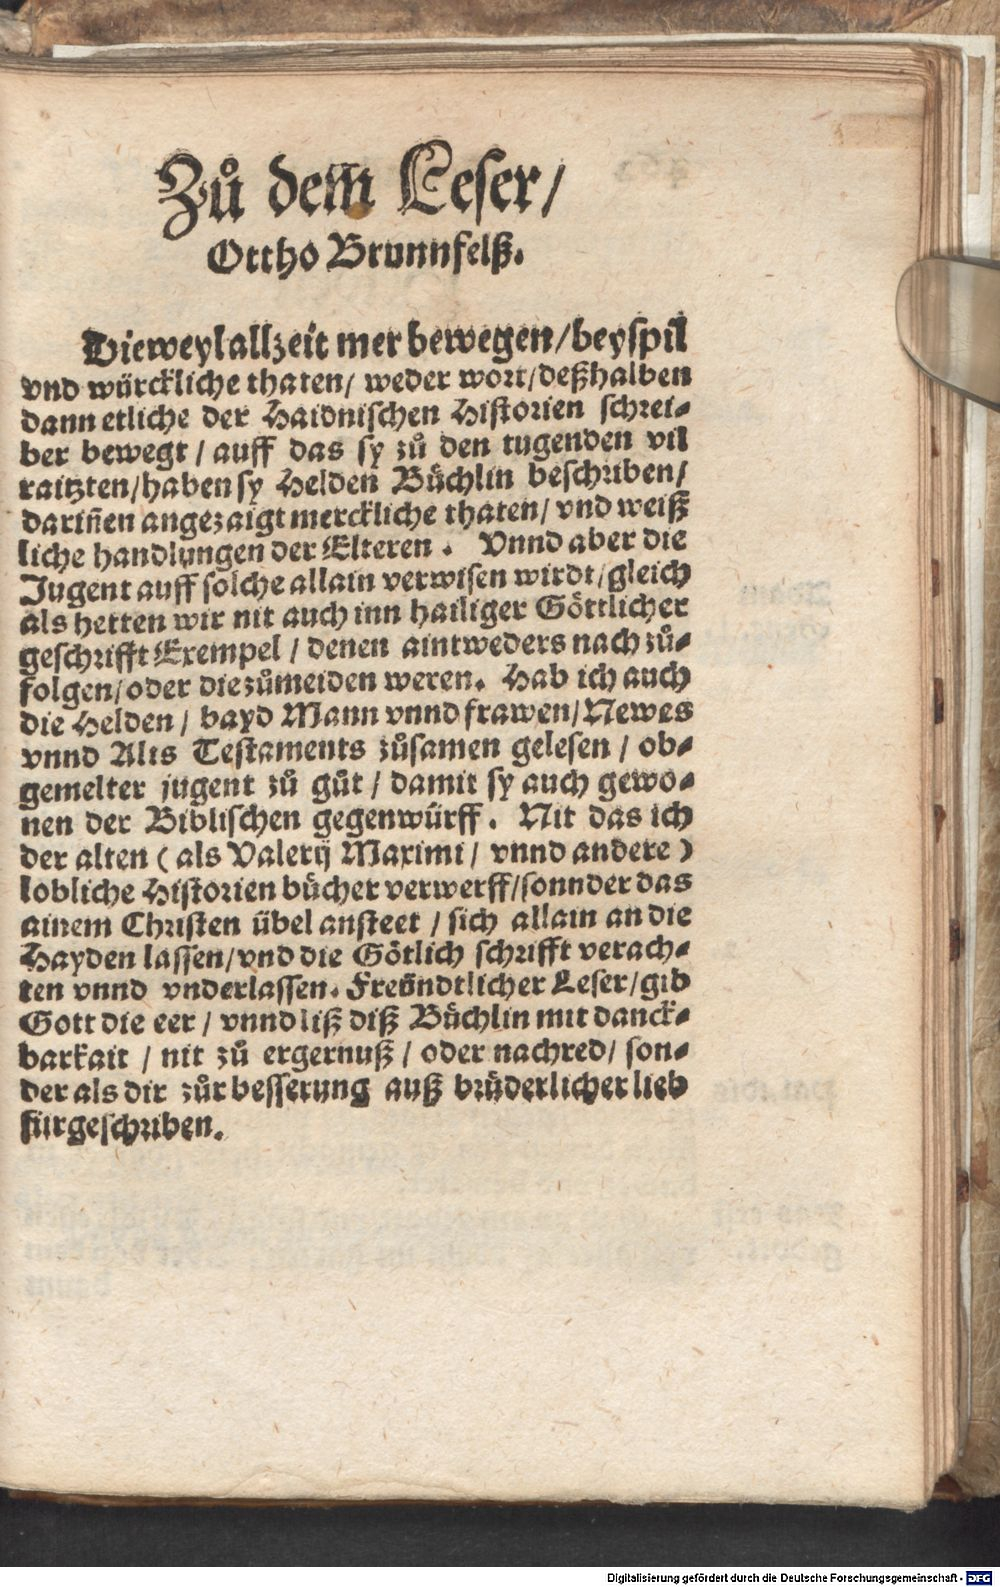 Zů dem Leser/
Ottho Brunnfelß.
Dieweyl allzeit mer bewegen/beyspil
vnd würckliche thaten/ weder wort/deßhalben
dann etliche der Haidnischen Historien schrei-
ber bewegt / auff das sy zů den tugenden vil
raitzten/haben sy Helden Büchlin beschriben/
dariñen angezaigt merckliche thaten/ vnd weiß
liche handlungen der Elteren . Vnnd aber die
Jugent auff solche allain verwisen wirdt/gleich
als hetten wir nit auch inn hailiger Göttlicher
geschrifft Exempel / denen aintweders nach zů-
folgen/oder die zůmeiden weren. Hab ich auch
die Helden / bayd Mann vnnd frawen/Newes
vnnd Alts Testaments zůsamen gelesen / ob-
gemelter jugent zů gůt / damit sy auch gewo-
nen der Biblischen gegenwürff. Nit das ich
der alten ( als Valerij Maximi/ vnnd andere )
lobliche Historien bücher verwerff/sonnder das
ainem Christen übel ansteet / sich allain an die
Hayden lassen/vnd die Götlich schrifft verach-
ten vnnd vnderlassen. Freündtlicher Leser/gib
Gott die eer / vnnd liß diß Büchlin mit danck-
barkait / nit zů ergernuß / oder nachred/ son-
der als dir zůr besserung auß brüderlicher lieb
fürgeschriben.
Digitalisierung gefördert durch die Deutsche Forschungsgemeinschaft - DFG